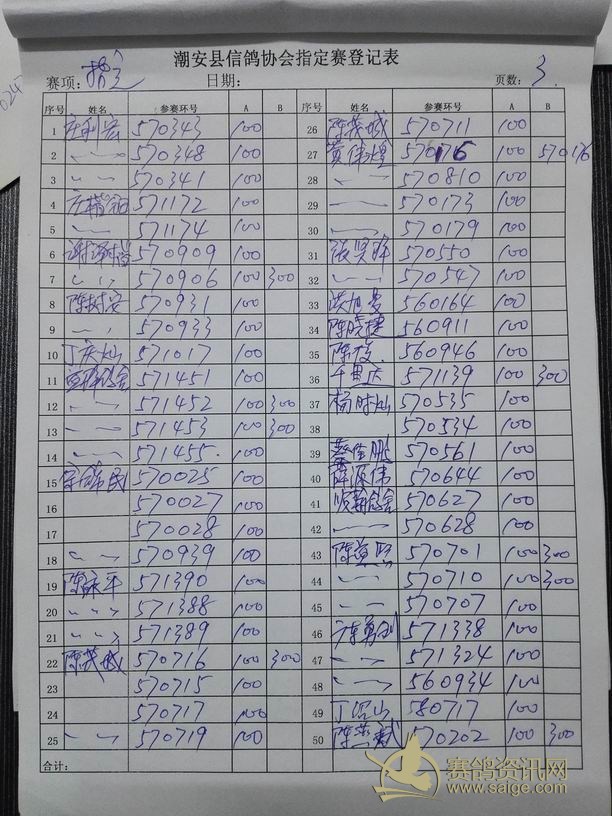 潮安县信鸽协会指定赛登记表
赛项：指定 日期： 页数：3
序号 姓名 参赛环号 A B 序号 姓名 参赛环号 A B
1 庄利宏 570343 100 26 陈茂城 570711 100
2 〃 570348 100 27 黄伟煌 570176 100 570176
3 〃 570341 100 28 〃 570810 100
4 571172 100 29 〃 570173 100
5 〃 571174 100 30 〃 570179 100
6 570909 100 31 张贤辉 570550 100
7 〃 570906 100 300 32 〃 570547 100
8 陈树安 570931 100 33 洪旭 560164 100
9 〃 570933 100 34 陈晓捷 560911 100
10 丁庆灿 571017 100 35 陈 560946 100
11 571451 100 36 571139 100 300
12 〃 571452 100 300 37 杨时灿 570535 100
13 〃 571453 100 300 38 〃 570534 100
14 〃 571455 100 39 蔡 鹏 570561 100
15 民 570025 100 40 薛源伟 570644 100
16 570027 100 41 570627 100
17 570028 100 42 〃 570628 100
18 〃 570939 100 43 陈 570701 100 300
19 陈永平 571390 100 44 〃 570710 100 300
20 〃 571388 100 45 〃 570707 100
21 〃 571389 100 46 571338 100
22 陈茂城 570716 100 300 47 〃 571324 100
23 570715 100 48 〃 560934 100
24 570717 100 49 丁绍山 580717 100
25 〃 570719 100 50 陈 斌 570202 100 300
合计：
赛鸽资讯网
www.saige.com